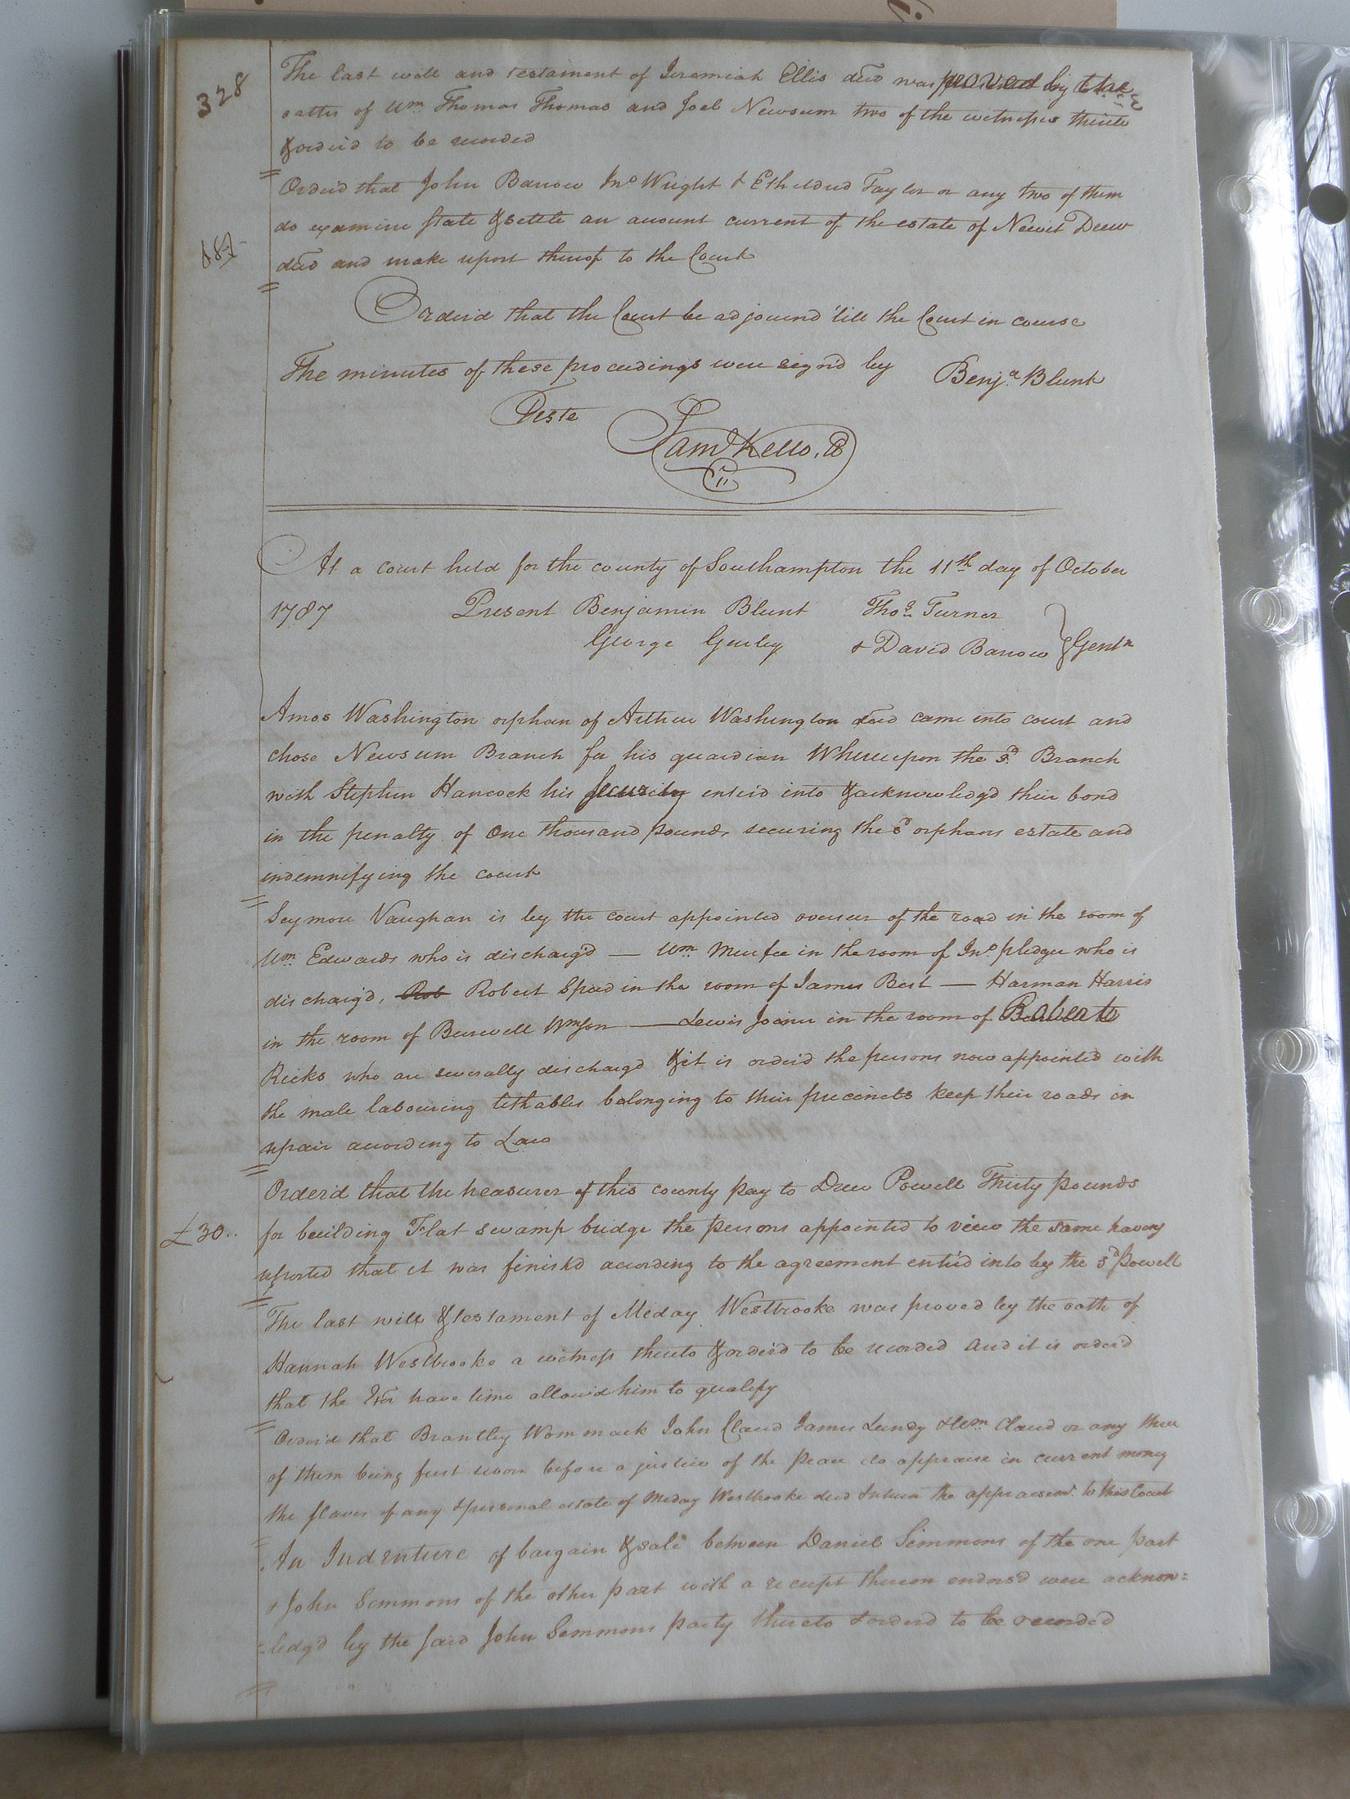 328
The last will and testament of Jeremiah Ellis decd was proved by the
oaths of Wm Thomas Thomas and Joel Newsum two of the witnesses thereto
& order'd to be recorded
Order'd that John Barrow Jno Wright & Etheldred Taylor or any two of them
do examine state & settle an account current of the estate of Newit Drew
187
decd and make report thereof to the Court
Order'd that the Court be adjourned 'till the Court in course
The minutes of these proceedings were sign'd by Benja Blunt
Teste
Saml Kello, C
At a court held for the county of Southampton the 11th day of October
1787 Present Benjamin Blunt Thos Turner
George Gurley & David Barrow } Gentn
Amos Washington orphan of Arthur Washington decd came into court and
chose Newsum Branch for his guardian Whereupon the sd Branch
with Stephen Hancock his security enter'd into & acknowledg'd their bond
in the penalty of One thousand pounds securing the sd orphans estate and
indemnifying the court
Seymore Vaughan is by the court appointed overseer of the road in the room of
Wm Edwards who is discharg'd — Wm Murfee in the room of Jno Pledger who is
discharg'd, Rob Robert Speed in the room of James Best — Harman Harris
in the room of Burwell Wmson — Lewis Joiner in the room of Roberts
Ricks who are severally discharg'd & it is order'd the persons now appointed with
the male labouring tithables belonging to their precincts keep their roads in
repair according to Law
Order'd that the treasurer of this county pay to Drew Powell Thirty pounds
£30..
for building Flat swamp bridge the persons appointed to view the same having
reported that it was finish'd according to the agreement enter'd into by the sd Powell
The last will & testament of Meday Westbrooke was proved by the oath of
Hannah Westbrooke a witness thereto & order'd to be recorded and it is order'd
that the Exor have time allow'd him to qualify
Order'd that Brantley Wommack John Claud James Lundy & Wm Claud or any three
of them being first sworn before a justice of the peace do appraise in current money
the slaves if any & personal estate of Meday Westbrooke decd & return the appraisemt to this Court
An Indenture of bargain & sale between Daniel Simmons of the one part
& John Simmons of the other part with a receipt thereon endors'd were acknow=
=ledg'd by the said John Simmons party thereto & order'd to be recorded